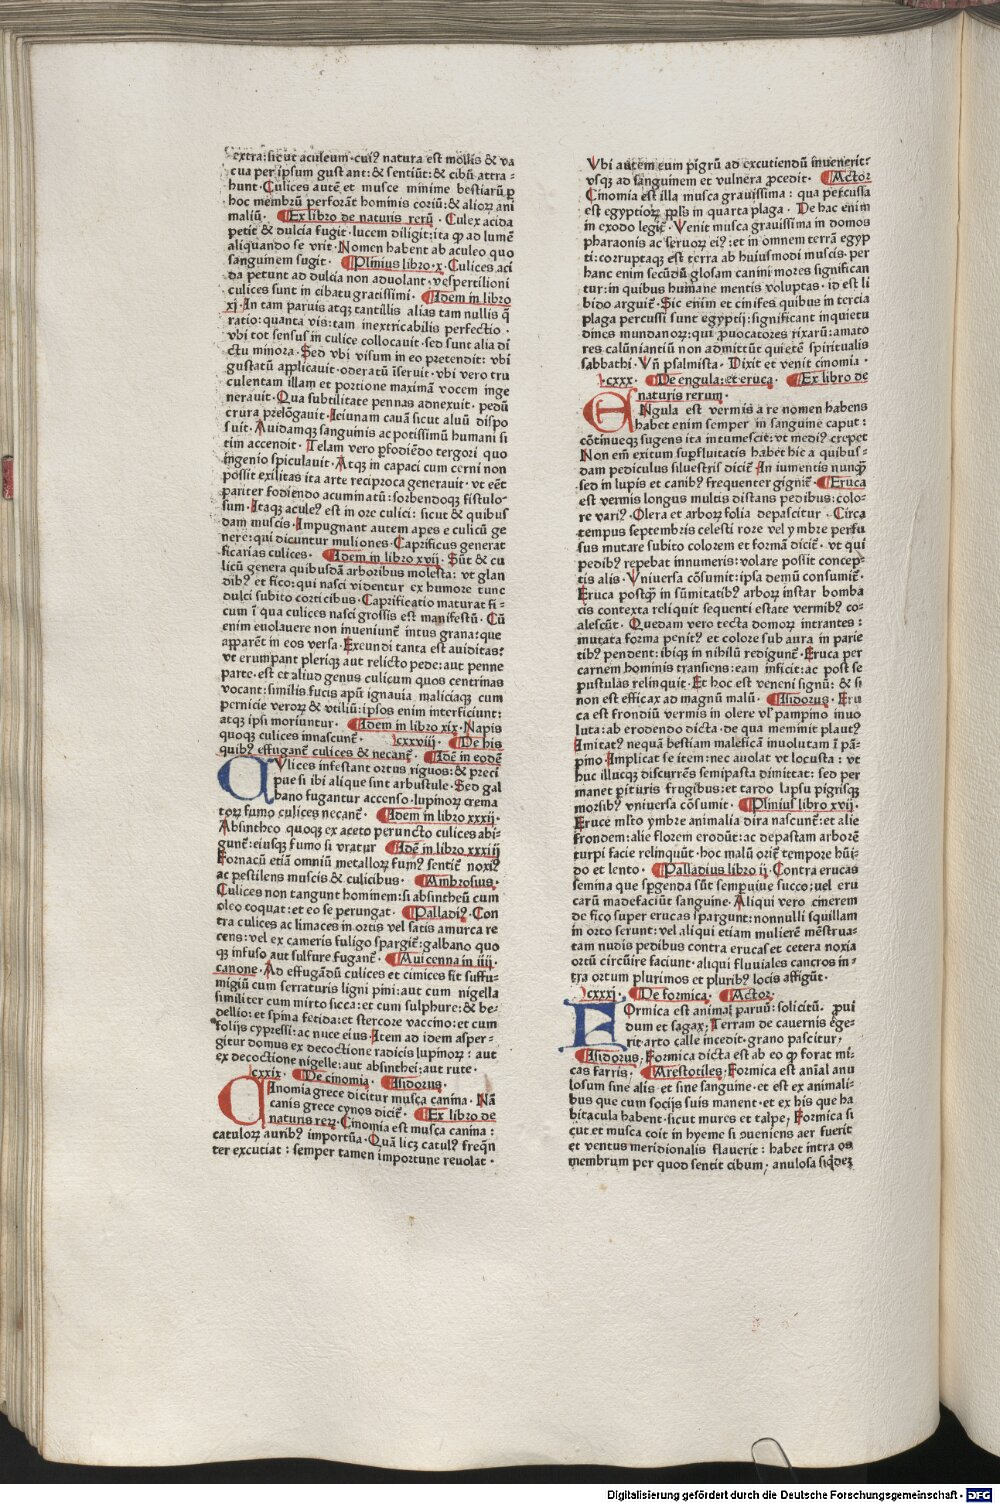 extra: sicut aculeum· cuiꝰ natura est mollis & va
cua per ipsum gustant: & sentiūt: & cibū attra-
hunt· Culices autē et musce minime bestiarū ꝑ
hoc membrū perforāt hominis coriū: & alioꝝ ani
maliū· Ex libro de naturis reꝝ· Culex acida
petit & dulcia fugit· lucem diligit: ita ꝙ ad lumē
aliquando se vrit· Nomen habent ab aculeo quo
sanguinem sugit· Plinius libro·x· Culices aci
da petunt ad dulcia non aduolant· vespertilioni
culices sunt in cibatu gratissimi· Idem in libro
xj· In tam paruis atqꝫ tantillis alias tam nullis q̄
ratio: quanta vis: tam inextricabilis perfectio·
vbi tot sensus in culice collocauit· sed sunt alia di
ctu minora· Sed vbi visum in eo pretendit: vbi
gustatū applicauit· oderatū īseruit· vbi vero tru
culentam illam et portione maximā vocem inge
nerauit· Qua subtilitate pennas adnexuit· pedū
crura prelōgauit· Ieiunam cauā sicut aluū dispo
suit· Auidamqꝫ sanguinis ac potissimū humani si
tim accendit· Telam vero ꝑfodiēdo tergori quo
ingenio spiculauit· Atqꝫ in capaci cum cerni non
possit exilitas ita arte reciproca generauit· vt eēt
pariter fodiendo acuminatū: sorbendoqꝫ fistulo-
sum· Itaqꝫ aculeꝰ est in ore culici: sicut & quibus
dam muscis· Impugnant autem apes e culicū ge
nere: qui dicuntur muliones· Caprificus generat
ficarias culices· Idem in libro xvij· Sūt & cu
licū genera quibusdā arboribus molesta: vt glan
dibꝰ et fico: qui nasci videntur ex humore tunc
dulci subito corticibus· Caprificatio maturat fi-
cum ī qua culices nasci grossis est manifestū· Cū
enim euolauere non inueniunt̄ intus grana: que
apparēt in eos versa· Exeundi tanta est auiditas:
vt erumpant pleriqꝫ aut relicto pede: aut penne
parte· est et aliud genus culicum quos centrinas
vocant: similis fucis apū ignauia maliciaqꝫ cum
pernicie veroꝝ & vtiliū: ipsos enim interficiunt:
atqꝫ ipsi moriuntur· Idem in libro xix· Napis
quoqꝫ culices innascunt̄· cxxviij· De his
quibꝰ effugant̄ culices & necant̄· Idē in eodē
CVlices infestant ortus riguos: & preci
pue si ibi alique sint arbustule· Sed gal
bano fugantur accenso· lupinoꝝ crema
toꝝ fumo culices necant̄· Idem in libro xxxij·
Absintheo quoqꝫ ex aceto peruncto culices abi-
gunt̄: eiusqꝫ fumo si vratur Idē in libro xxxiij
Fornacū etiā omniū metalloꝝ fumꝰ sentit̄ noxiꝰ
ac pestilens muscis & culicibus· Ambrosius·
Culices non tangunt hominem: si absintheū cum
oleo coquat: et eo se perungat· Palladiꝰ· Con
tra culices ac limaces in ortis vel satis amurca re
cens: vel ex cameris fuligo spargit̄: galbano quo
qꝫ infuso aut sulfure fugant̄· Auicenna in iiij·
canone· Ad effugādū culices et cimices fit suffu
migiū cum serraturis ligni pini: aut cum nigella
similiter cum mirto sicca: et cum sulphure: & be-
dellio: et spina fetida: et stercore vaccino: et cum
folijs cypressi: ac nuce eius· Item ad idem asper-
gitur domus ex decoctione radicis lupinoꝝ: aut
ex decoctione nigelle: aut absinthei: aut rute·
cxxix· De cinomia· Isidorus·
CInomia grece dicitur musca canina· Nā
canis grece cynos dicit̄· Ex libro de
naturis reꝝ· Cinomia est musca canina:
catuloꝝ auribꝰ importūa· Quā licꝫ catulꝰ freqn̄
ter excutiat: semper tamen importune reuolat·
Vbi autem eum pigrū ad excutiendū inuenerit:
vsqꝫ ad sanguinem et vulnera ꝓcedit· Actor
Cinomia est illa musca grauissima: qua percussa
est egyptioꝝ ppl̄s in quarta plaga· De hac enim
in exodo legit̄· Venit musca grauissima in domos
pharaonis ac seruoꝝ eiꝰ: et in omnem terrā egyp
ti: corruptaqꝫ est terra ab huiusmodi muscis· per
hanc enim secūdū glosam canini mores significan
tur: in quibus humane mentis voluptas· id est li
bido arguit̄· Sic enim et cinifes quibus in tercia
plaga percussi sunt egyptij: significant inquietu
dines mundanoꝝ: qui ꝓuocatores rixarū: amato
res calūniantiū non admittūt quietē spiritualis
sabbathi· Vn̄ psalmista· Dixit et venit cinomia·
cxxx· De engula: et eruca· Ex libro de
naturis rerum·
ENgula est vermis a re nomen habens
habet enim semper in sanguine caput:
cōtinueqꝫ sugens ita intumescit: vt mediꝰ crepet
Non em̄ exitum suꝑfluitatis habet hic a quibus-
dam pediculus siluestris dicit̄ In iumentis nunqꝫ̄
sed in lupis et canibꝰ frequenter gignit̄· Eruca
est vermis longus multis distans pedibus: colo-
re variꝰ· Olera et arboꝝ folia depascitur· Circa
tempus septembris celesti rore vel ymbre perfu
sus mutare subito colorem et formā dicit̄· vt qui
pedibꝰ repebat innumeris: volare possit concep-
tis alis· Vniuersa cōsumit: ipsa demū consumit̄·
Eruca postqꝫ̄ in sūmitatibꝰ arboꝝ instar bomba
cis contexta reliquit sequenti estate vermibꝰ co-
alescūt· Quedam vero tecta domoꝝ intrantes:
mutata forma penitꝰ et colore sub aura in parie
tibꝰ pendent: ibiqꝫ in nihilū redigunt̄· Eruca per
carnem hominis transiens: eam inficit: ac post se
pustulas relinquit· Et hoc est veneni signū: & si
non est efficax ad magnū malū· Isidorus· Eru
ca est frondiū vermis in olere vl̓ pampino inuo
luta: ab erodendo dicta· de qua meminit plautꝰ
Imitatꝰ nequā bestiam maleficā inuolutam ī pā-
pino· Implicat se item: nec auolat vt locusta: vt
huc illucqꝫ discurrēs semipasta dimittat: sed per
manet ꝑituris frugibus: et tardo lapsu pigrisqꝫ
morsibꝰ vniuersa cōsumit· Plinius libro xvij·
Eruce ml̄to ymbre animalia dira nascunt̄: et alie
frondem: alie florem erodūt: ac depastam arborē
turpi facie relinquūt· hoc malū orit̄ tempore hūi-
do et lento· Palladius libro ij· Contra erucas
semina que spꝑgenda sūt sempuiue succo: uel eru
carū madefaciūt sanguine· Aliqui vero cinerem
de fico super erucas spargunt: nonnulli squillam
in orto serunt: vel aliqui etiam mulierē mēstrua-
tam nudis pedibus contra erucas et cetera noxia
ortū circūire faciunt· aliqui fluuiales cancros in-
tra ortum plurimos et pluribꝰ locis affigūt·
cxxxj· De formica· Actor·
FOrmica est animal paruū: solicitū· ꝓui
dum et sagax: Terram de cauernis ege-
rit· arto calle incedit· grano pascitur,
Isidorus, Formica dicta est ab eo ꝙ forat mi-
cas farris, Arestotiles, Formica est anīal anu
losum sine alis et sine sanguine· et est ex animali-
bus que cum socijs suis manent· et ex his que ha
bitacula habent· sicut mures et talpe, Formica si
cut et musca coit in hyeme si ꝯueniens aer fuerit
et ventus meridionalis flauerit: habet intra os
membrum per quod sentit cibum, anulosa siqdeꝫ
Digitalisierung gefördert durch die Deutsche Forschungsgemeinschaft - DFG